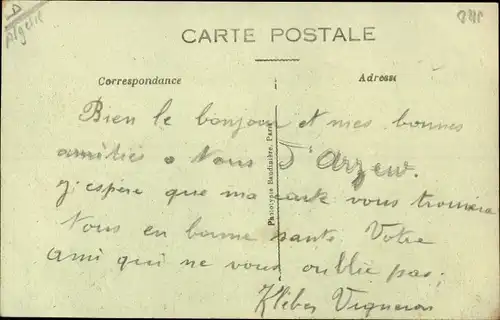 Algérie
CARTE POSTALE
Correspondance
Adresse
Bien le bonjour et mes bonnes
amitiés a tous D'Arzew.
J'espère que ma carte vous trouvera
tous en bonne santé. Votre
ami qui ne vous oublie pas.
Kléber Vigneron
Phototypie Baudinière, Paris